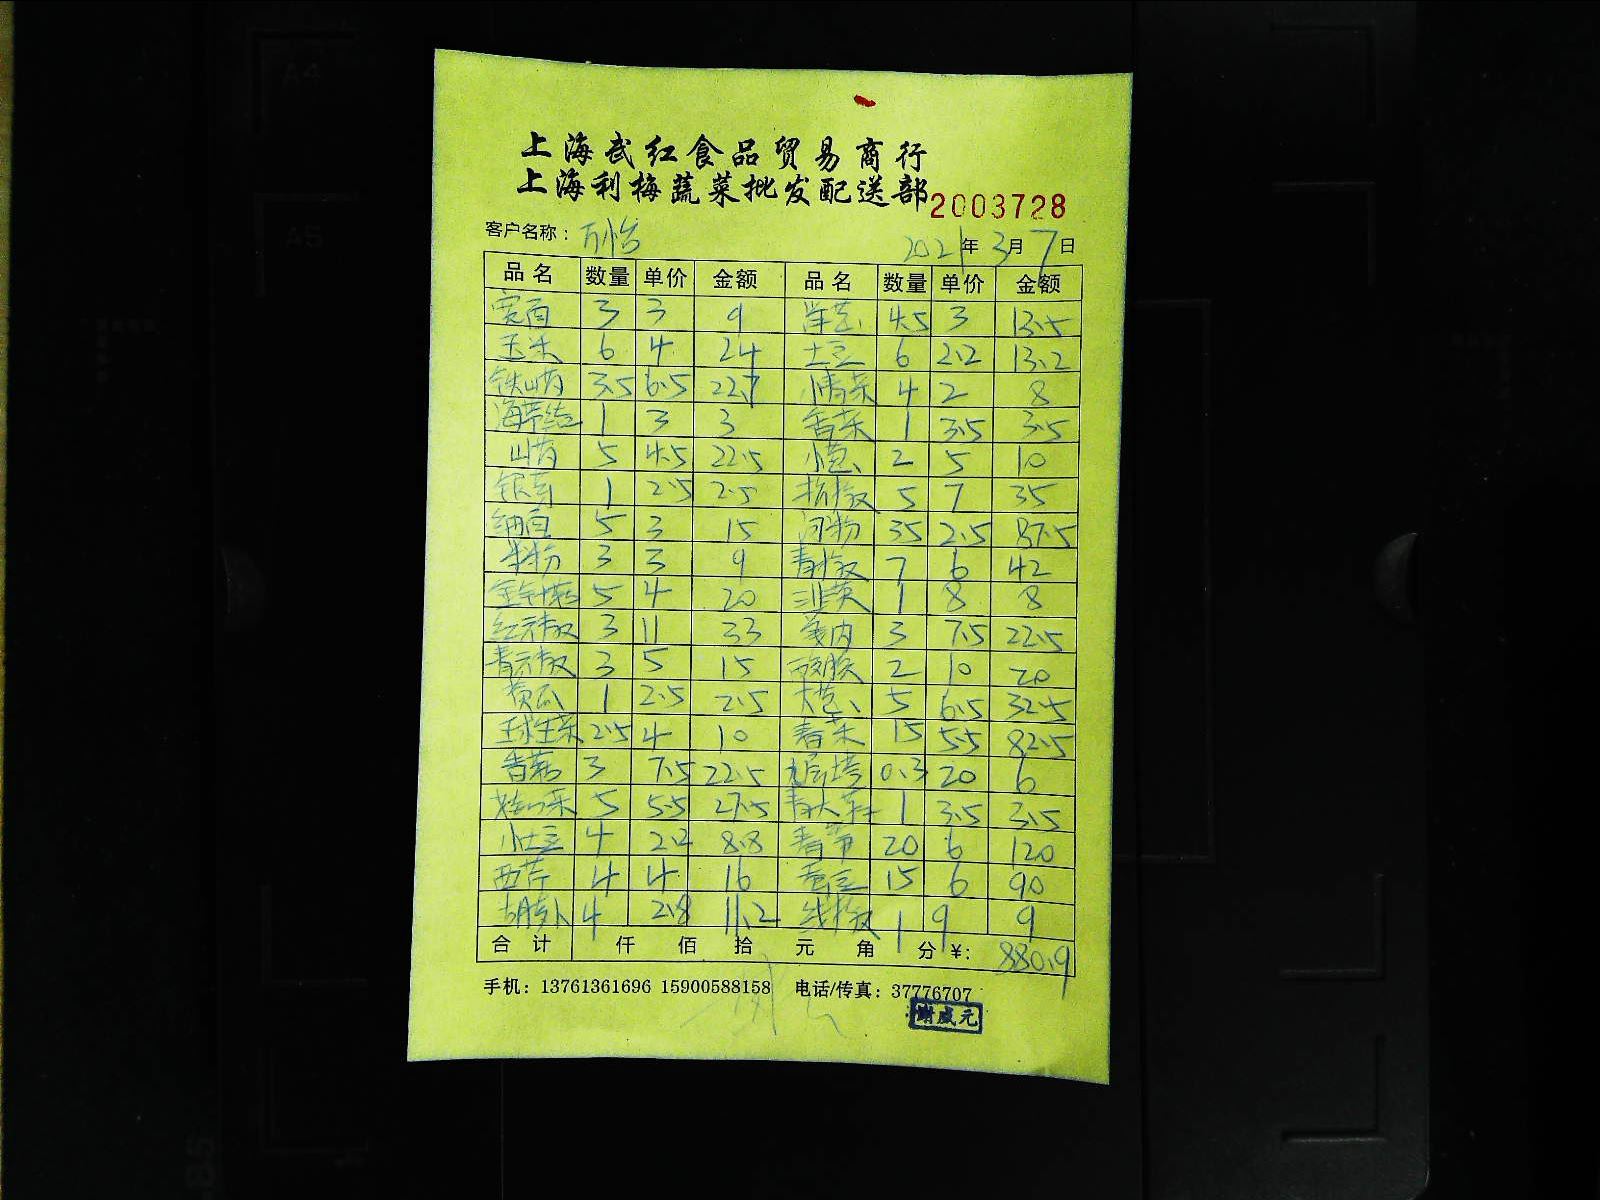 上海武红食品贸易商行
上海利梅蔬菜批发配送部 2003728
客户名称：万怡 2021年3月7日
品名 数量 单价 金额 品名 数量 单价 金额
宽面 3 3 9 洋芋 4.5 3 13.5
玉米 6 4 24 土豆 6 2.2 13.2
铁山药 3.5 6.5 22.7 菜 4 2 8
海带结 1 3 3 香菜 1 3.5 3.5
山药 5 4.5 22.5 小葱 2 5 10
银芽 1 2.5 2.5 椒 5 7 35
细面 5 3 15 河粉 35 2.5 87.5
米粉 3 3 9 青椒 7 6 42
金针菇 5 4 20 韭菜 1 8 8
红元椒 3 11 33 姜肉 3 7.5 22.5
青元椒 3 5 15 2 10 20
黄瓜 1 2.5 2.5 大葱 5 6.5 32.5
玉球生菜 2.5 4 10 春菜 15 5.5 82.5
香菇 3 7.5 22.5 九层塔 0.3 20 6
菜 5 5.5 27.5 青大蒜 1 3.5 3.5
小土豆 4 2.2 8.8 春笋 20 6 120
西芹 4 4 16 蚕豆 15 6 90
胡萝卜 4 2.8 11.2 线椒 1 9 9
合计 仟 佰 拾 元 角 分 ¥: 880.9
手机：13761361696 15900588158 电话/传真：37776707
谢威元